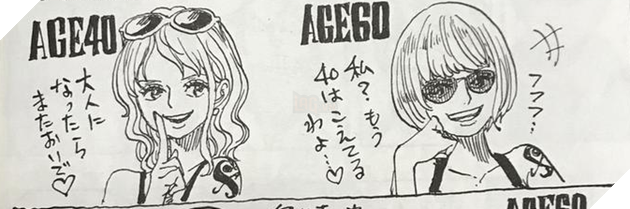 AGE40
大人に
なったら
またおいで♡
AGE60
私?もう
40はこえてる
わよ…♡
フフフ…
AGE60